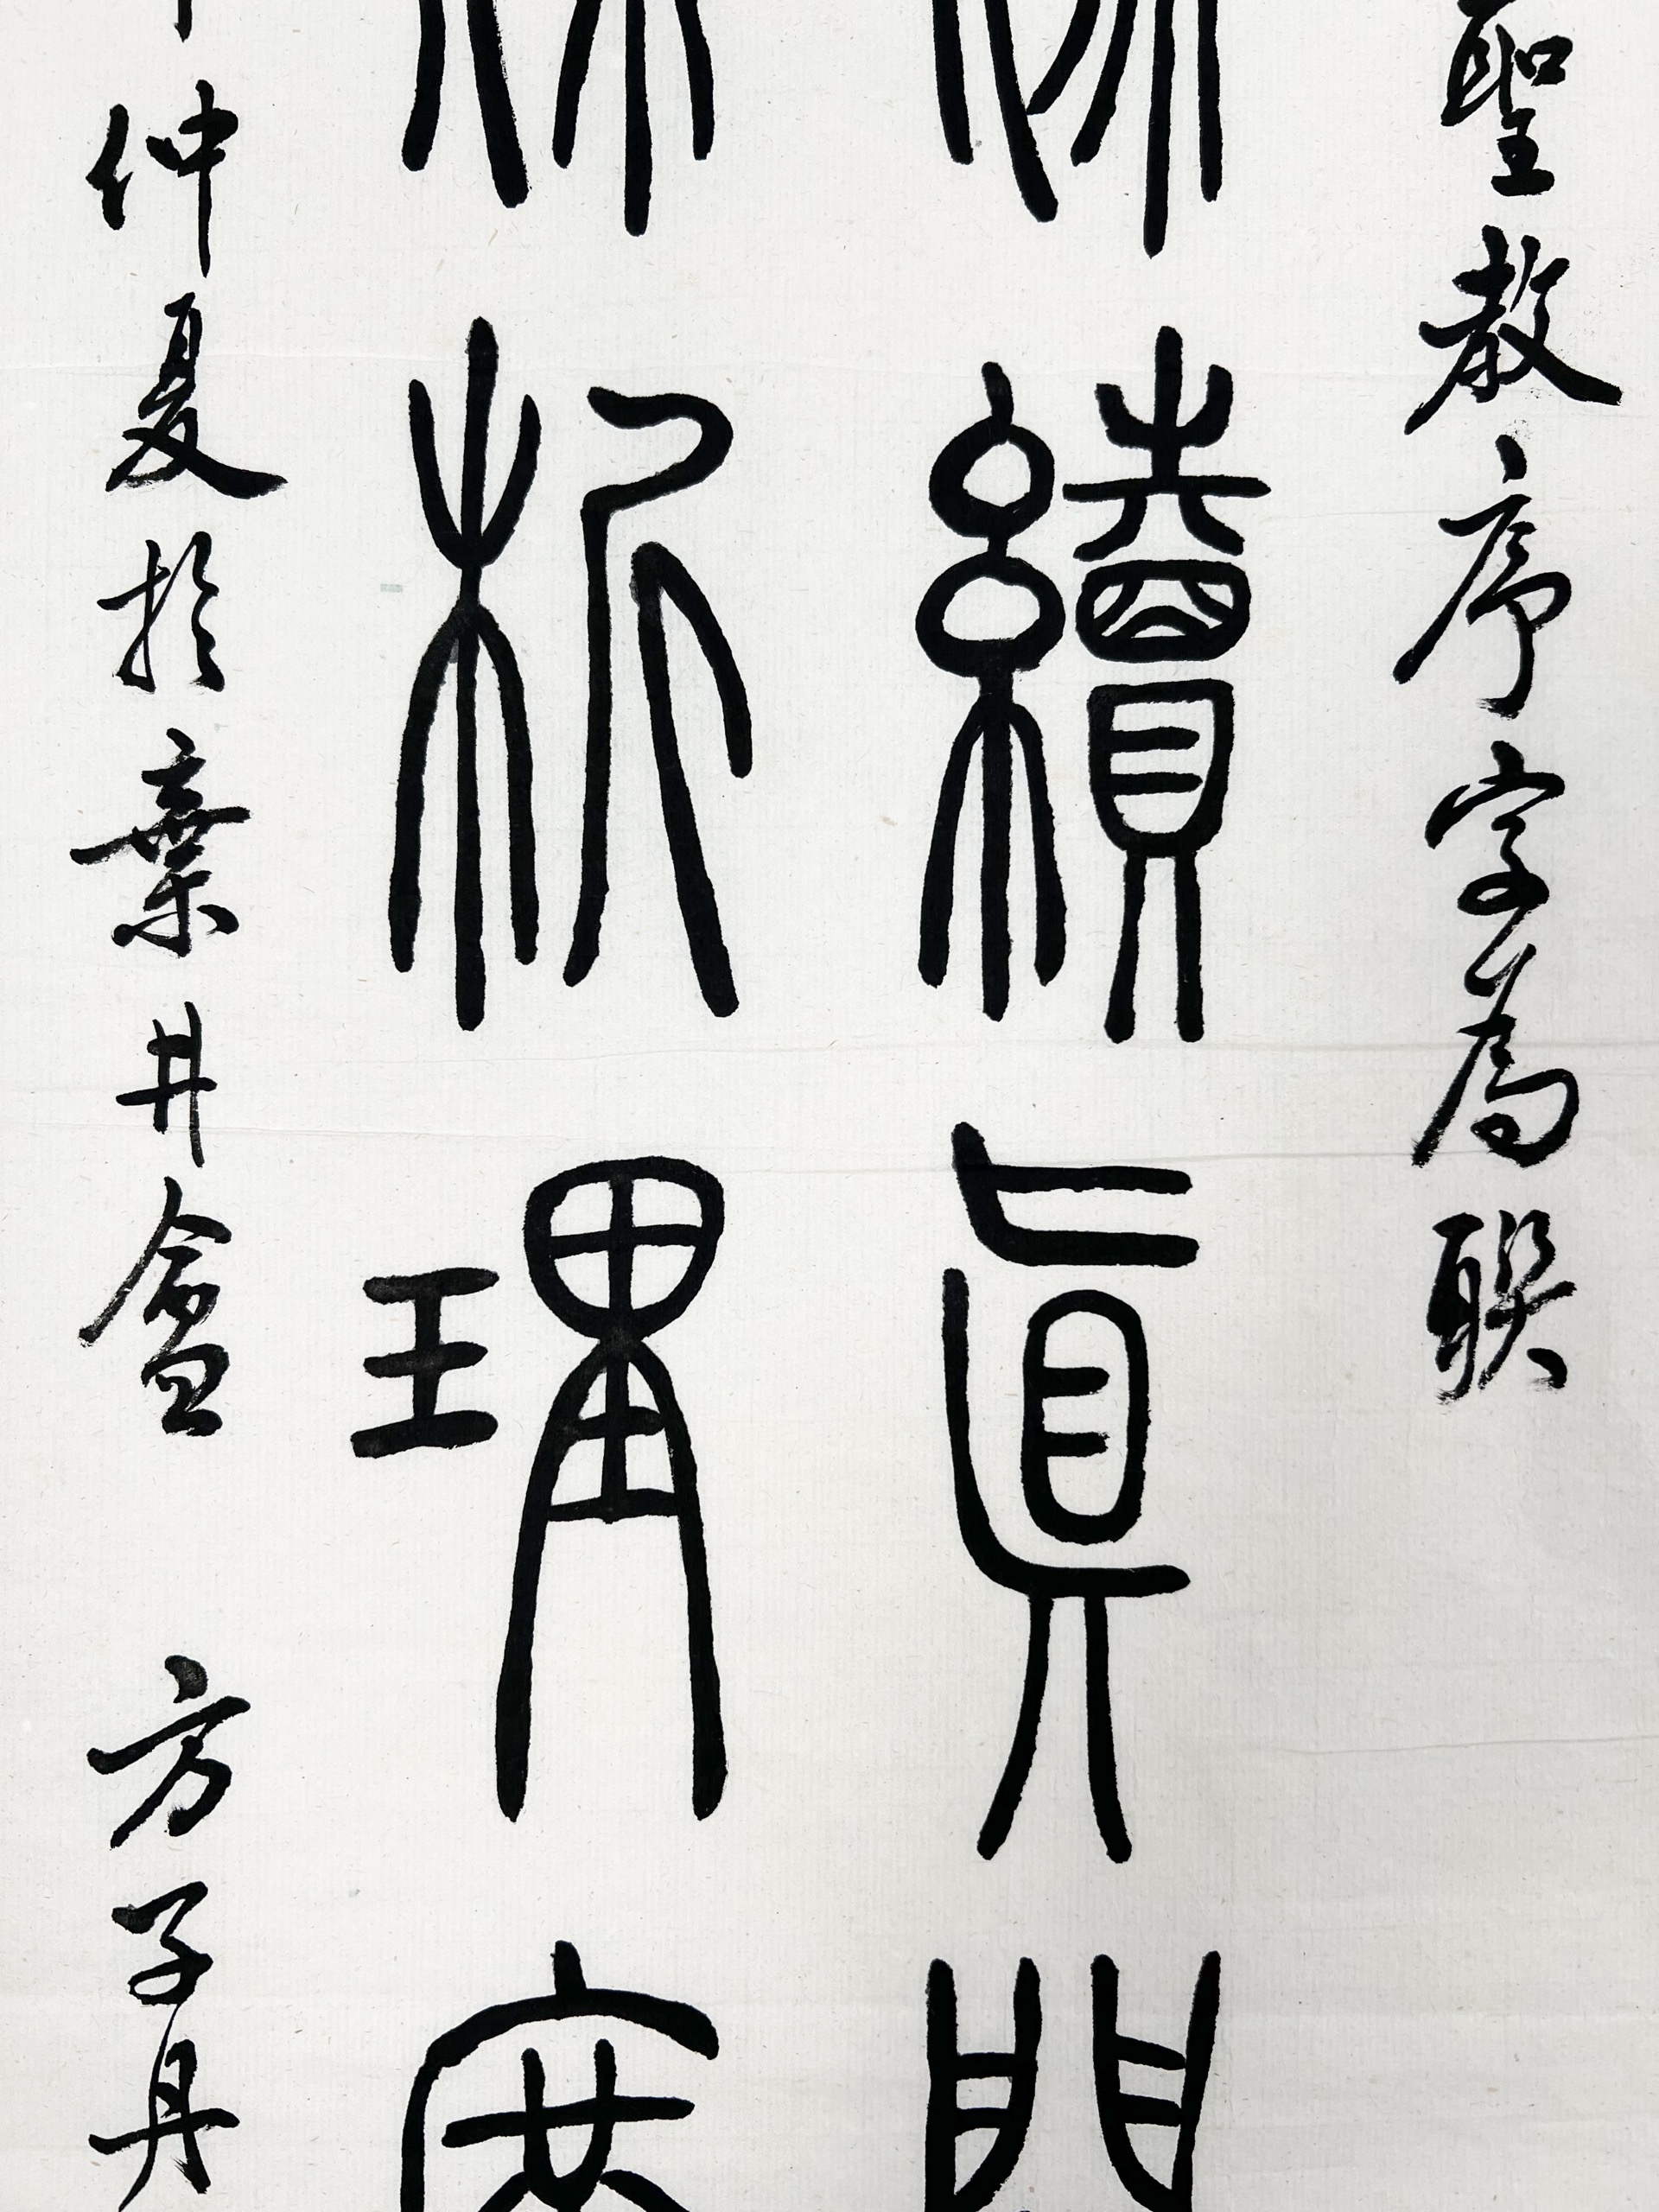 聖教序字為聯
續真
析理
仲夏於棄井盦 方子丹